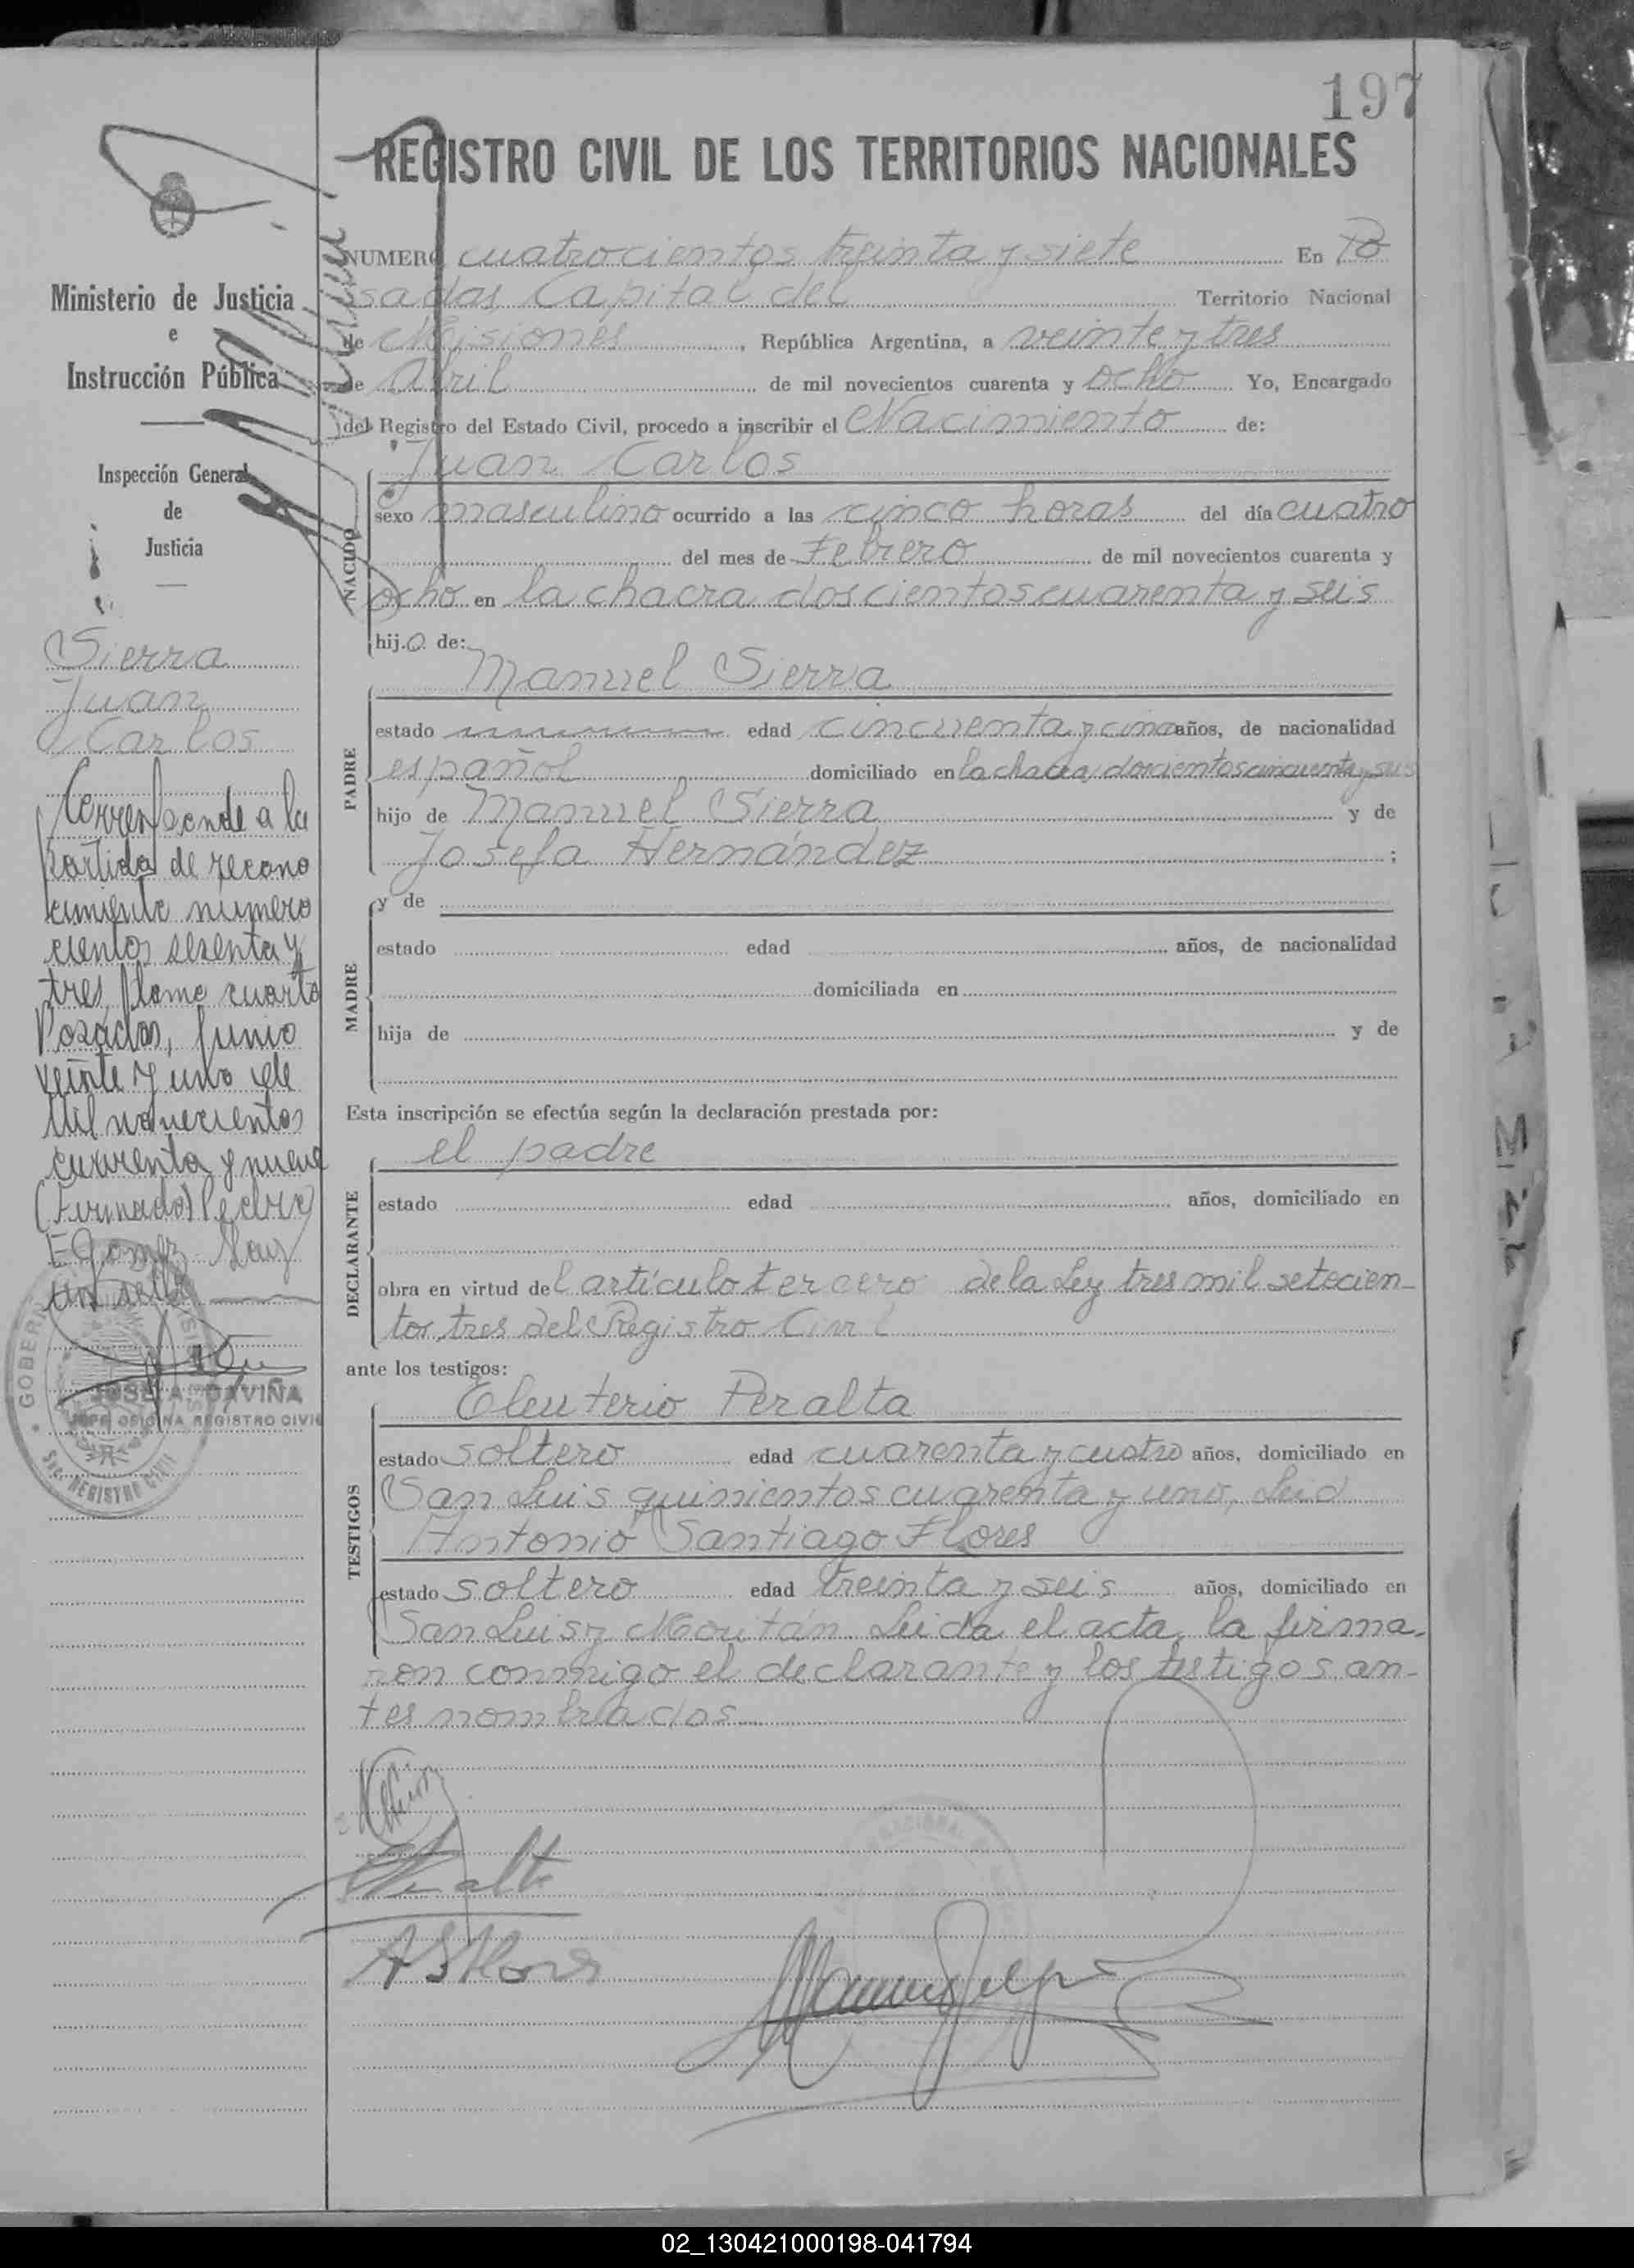 197
REGISTRO CIVIL DE LOS TERRITORIOS NACIONALES
NUMERO cuatrocientos treinta y siete En Po
sadas Capital del Territorio Nacional
de Misiones, República Argentina, a veinte y tres
de Abril de mil novecientos cuarenta y ocho Yo, Encargado
del Registro del Estado Civil, procedo a inscribir el Nacimiento de:
NACIDO
Juan Carlos
sexo masculino ocurrido a las cinco horas del día cuatro
del mes de Febrero de mil novecientos cuarenta y
ocho en la chacra doscientos cuarenta y seis
hijo de:
PADRE
Manuel Sierra
estado edad cincuenta y cinco años, de nacionalidad
español domiciliado en la chacra doscientos cincuenta y seis
hijo de Manuel Sierra y de
Josefa Hernández;
MADRE
y de
estado edad años, de nacionalidad
domiciliada en
hija de y de
Esta inscripción se efectúa según la declaración prestada por:
DECLARANTE
el padre
estado edad años, domiciliado en
obra en virtud del artículo tercero de la Ley tres mil setecien-
tos tres del Registro Civil
ante los testigos:
TESTIGOS
Eleuterio Peralta
estado soltero edad cuarenta y cuatro años, domiciliado en
San Luis quinientos cuarenta y uno,
Antonio Santiago Flores
estado soltero edad treinta y seis años, domiciliado en
San Luis y Leida el acta, la firma-
ron conmigo el declarante y los testigos an-
tes nombrados
Peralta
A S Flores
Ministerio de Justicia
e
Instrucción Pública
Inspección General
de
Justicia
Sierra
Juan
Carlos
Corresponde a la
partida de recono
cimiento número
ciento sesenta y
tres tomo cuarto
Posadas, Junio
veinte y uno de
mil novecientos
cuarenta y nueve
(Firmado) Pedro
E Gomez
un sello
JOSE A. DAVIÑA
JEFE OFICINA REGISTRO CIVIL
REGISTRO CIVIL
02_130421000198-041794